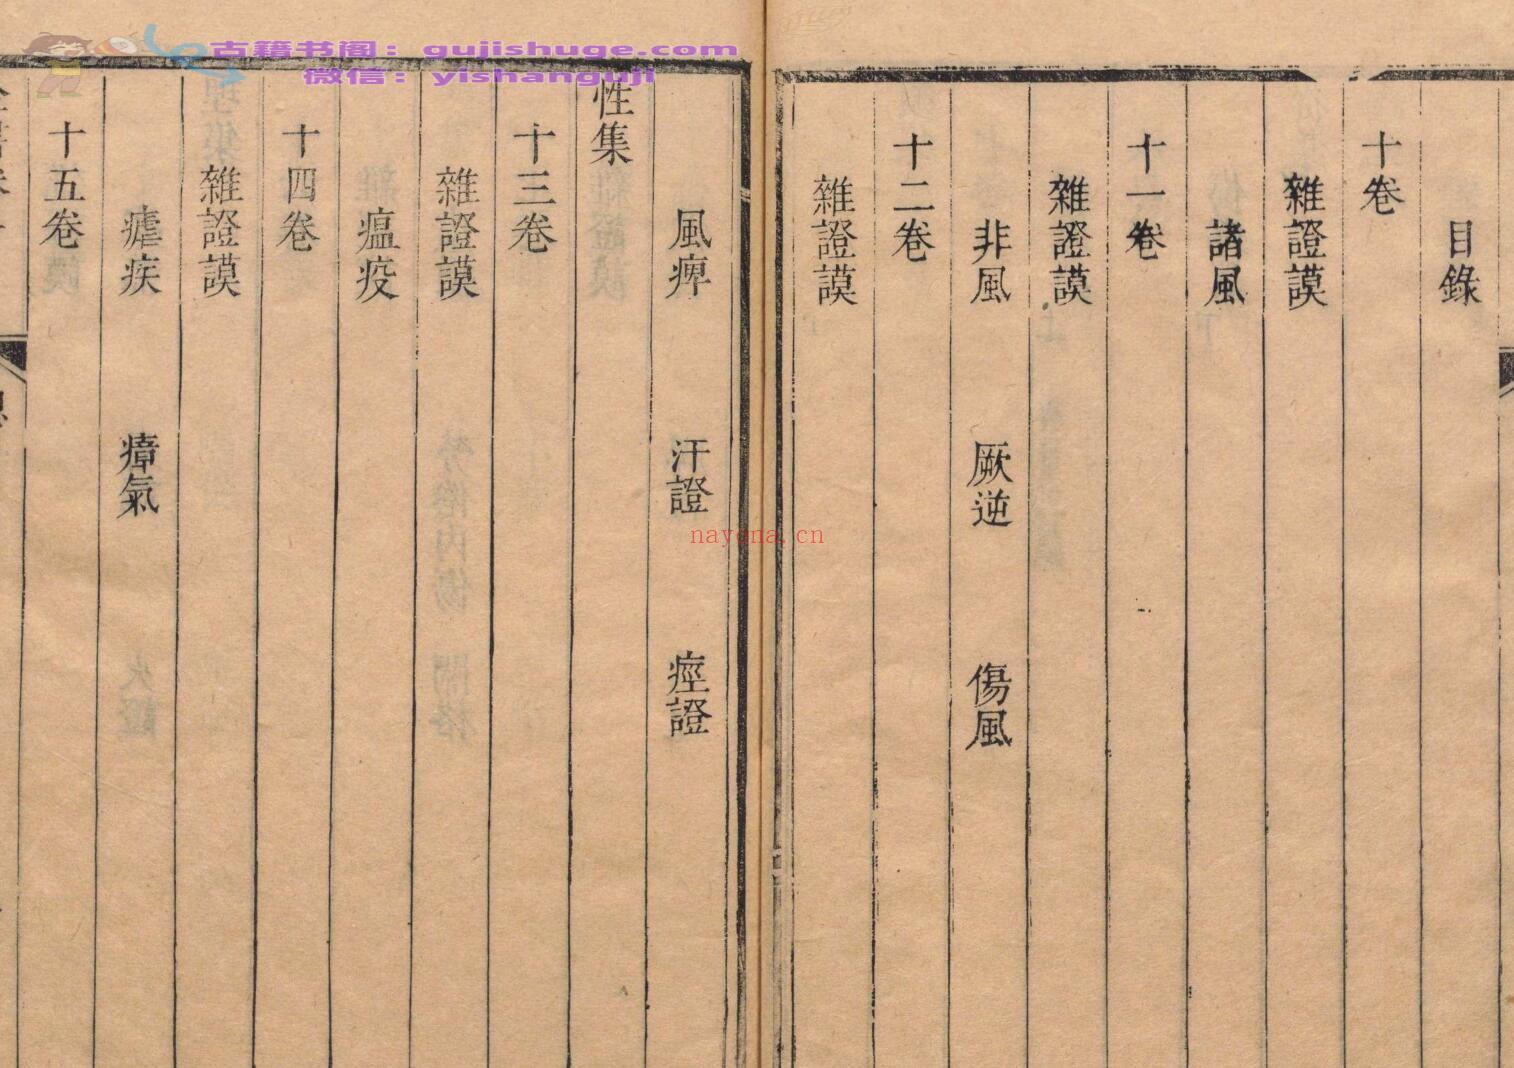 古籍书阁：gujishuge.com
微信：yishanguji
目錄
十卷
雜證謨
諸風
十一卷
雜證謨
非風 厥逆 傷風
十二卷
雜證謨
風痺 汗證 痙證
性集
十三卷
雜證謨
瘟疫
十四卷
雜證謨
瘧疾 瘴氣
十五卷
nayona.cn